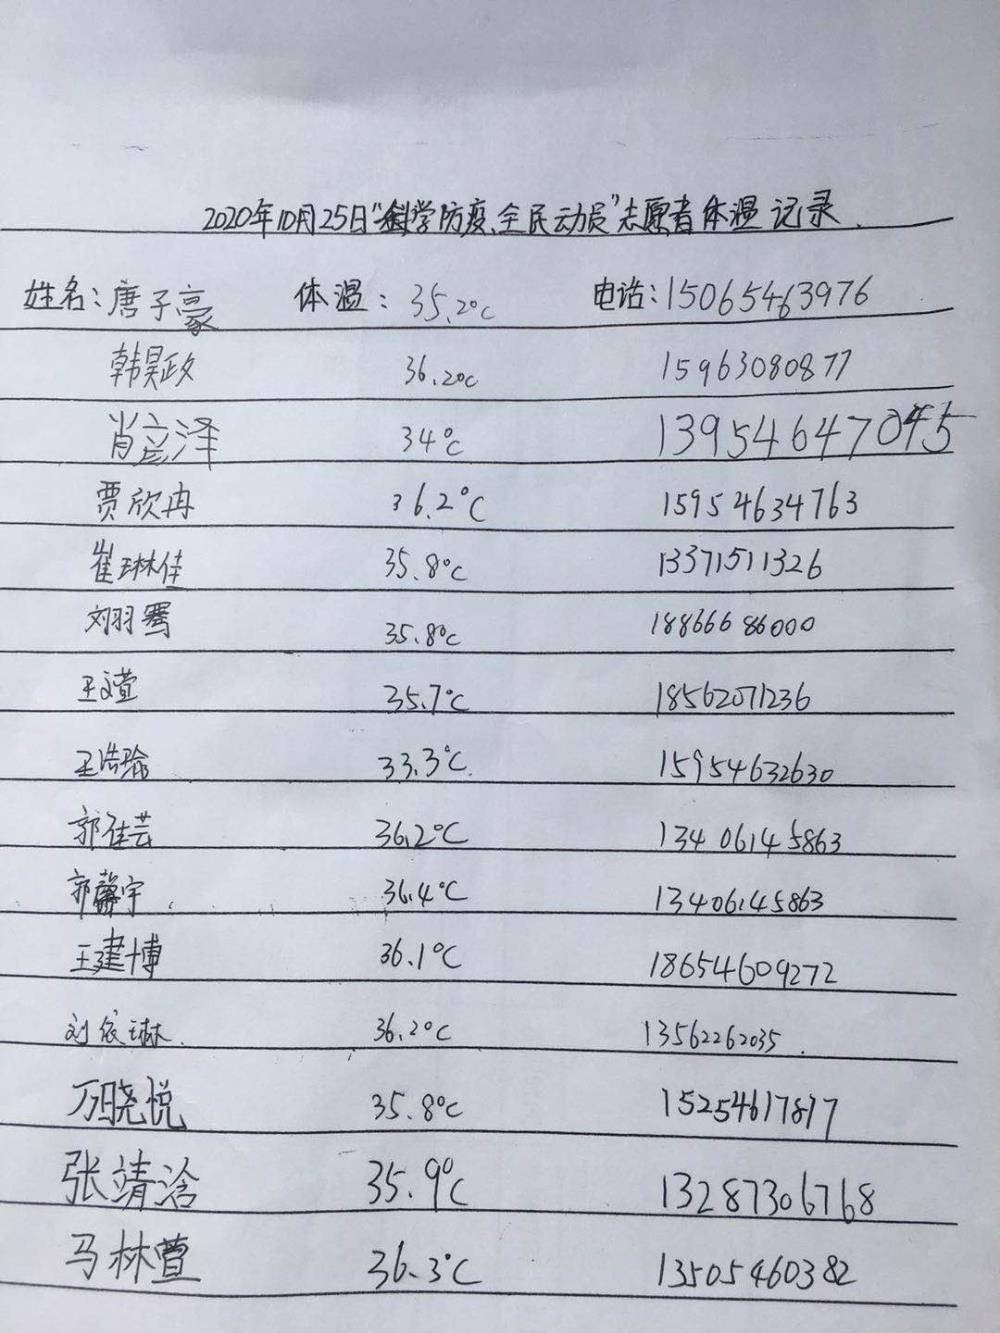 2020年10月25日“科学防疫、全民动员”志愿者体温记录.
姓名:唐子豪 体温:35.2℃ 电话:15065463976
韩昊政 36.2℃ 15963080877
肖彦泽 34℃ 13954647045
贾欣冉 36.2℃ 15954634763
崔琳佳 35.8℃ 13371511326
刘羽骞 35.8℃ 18866686000
王文萱 35.7℃ 18562071236
王浩瑜 33.3℃ 15954632630
郭佳芸 36.2℃ 13406145863
郭馨宇 36.4℃ 13406145863
王建博 36.1℃ 18654609272
刘依琳 36.2℃ 13562262035
万晓悦 35.8℃ 15254617817
张靖浛 35.9℃ 13287306768
马林萱 36.3℃ 13505460382